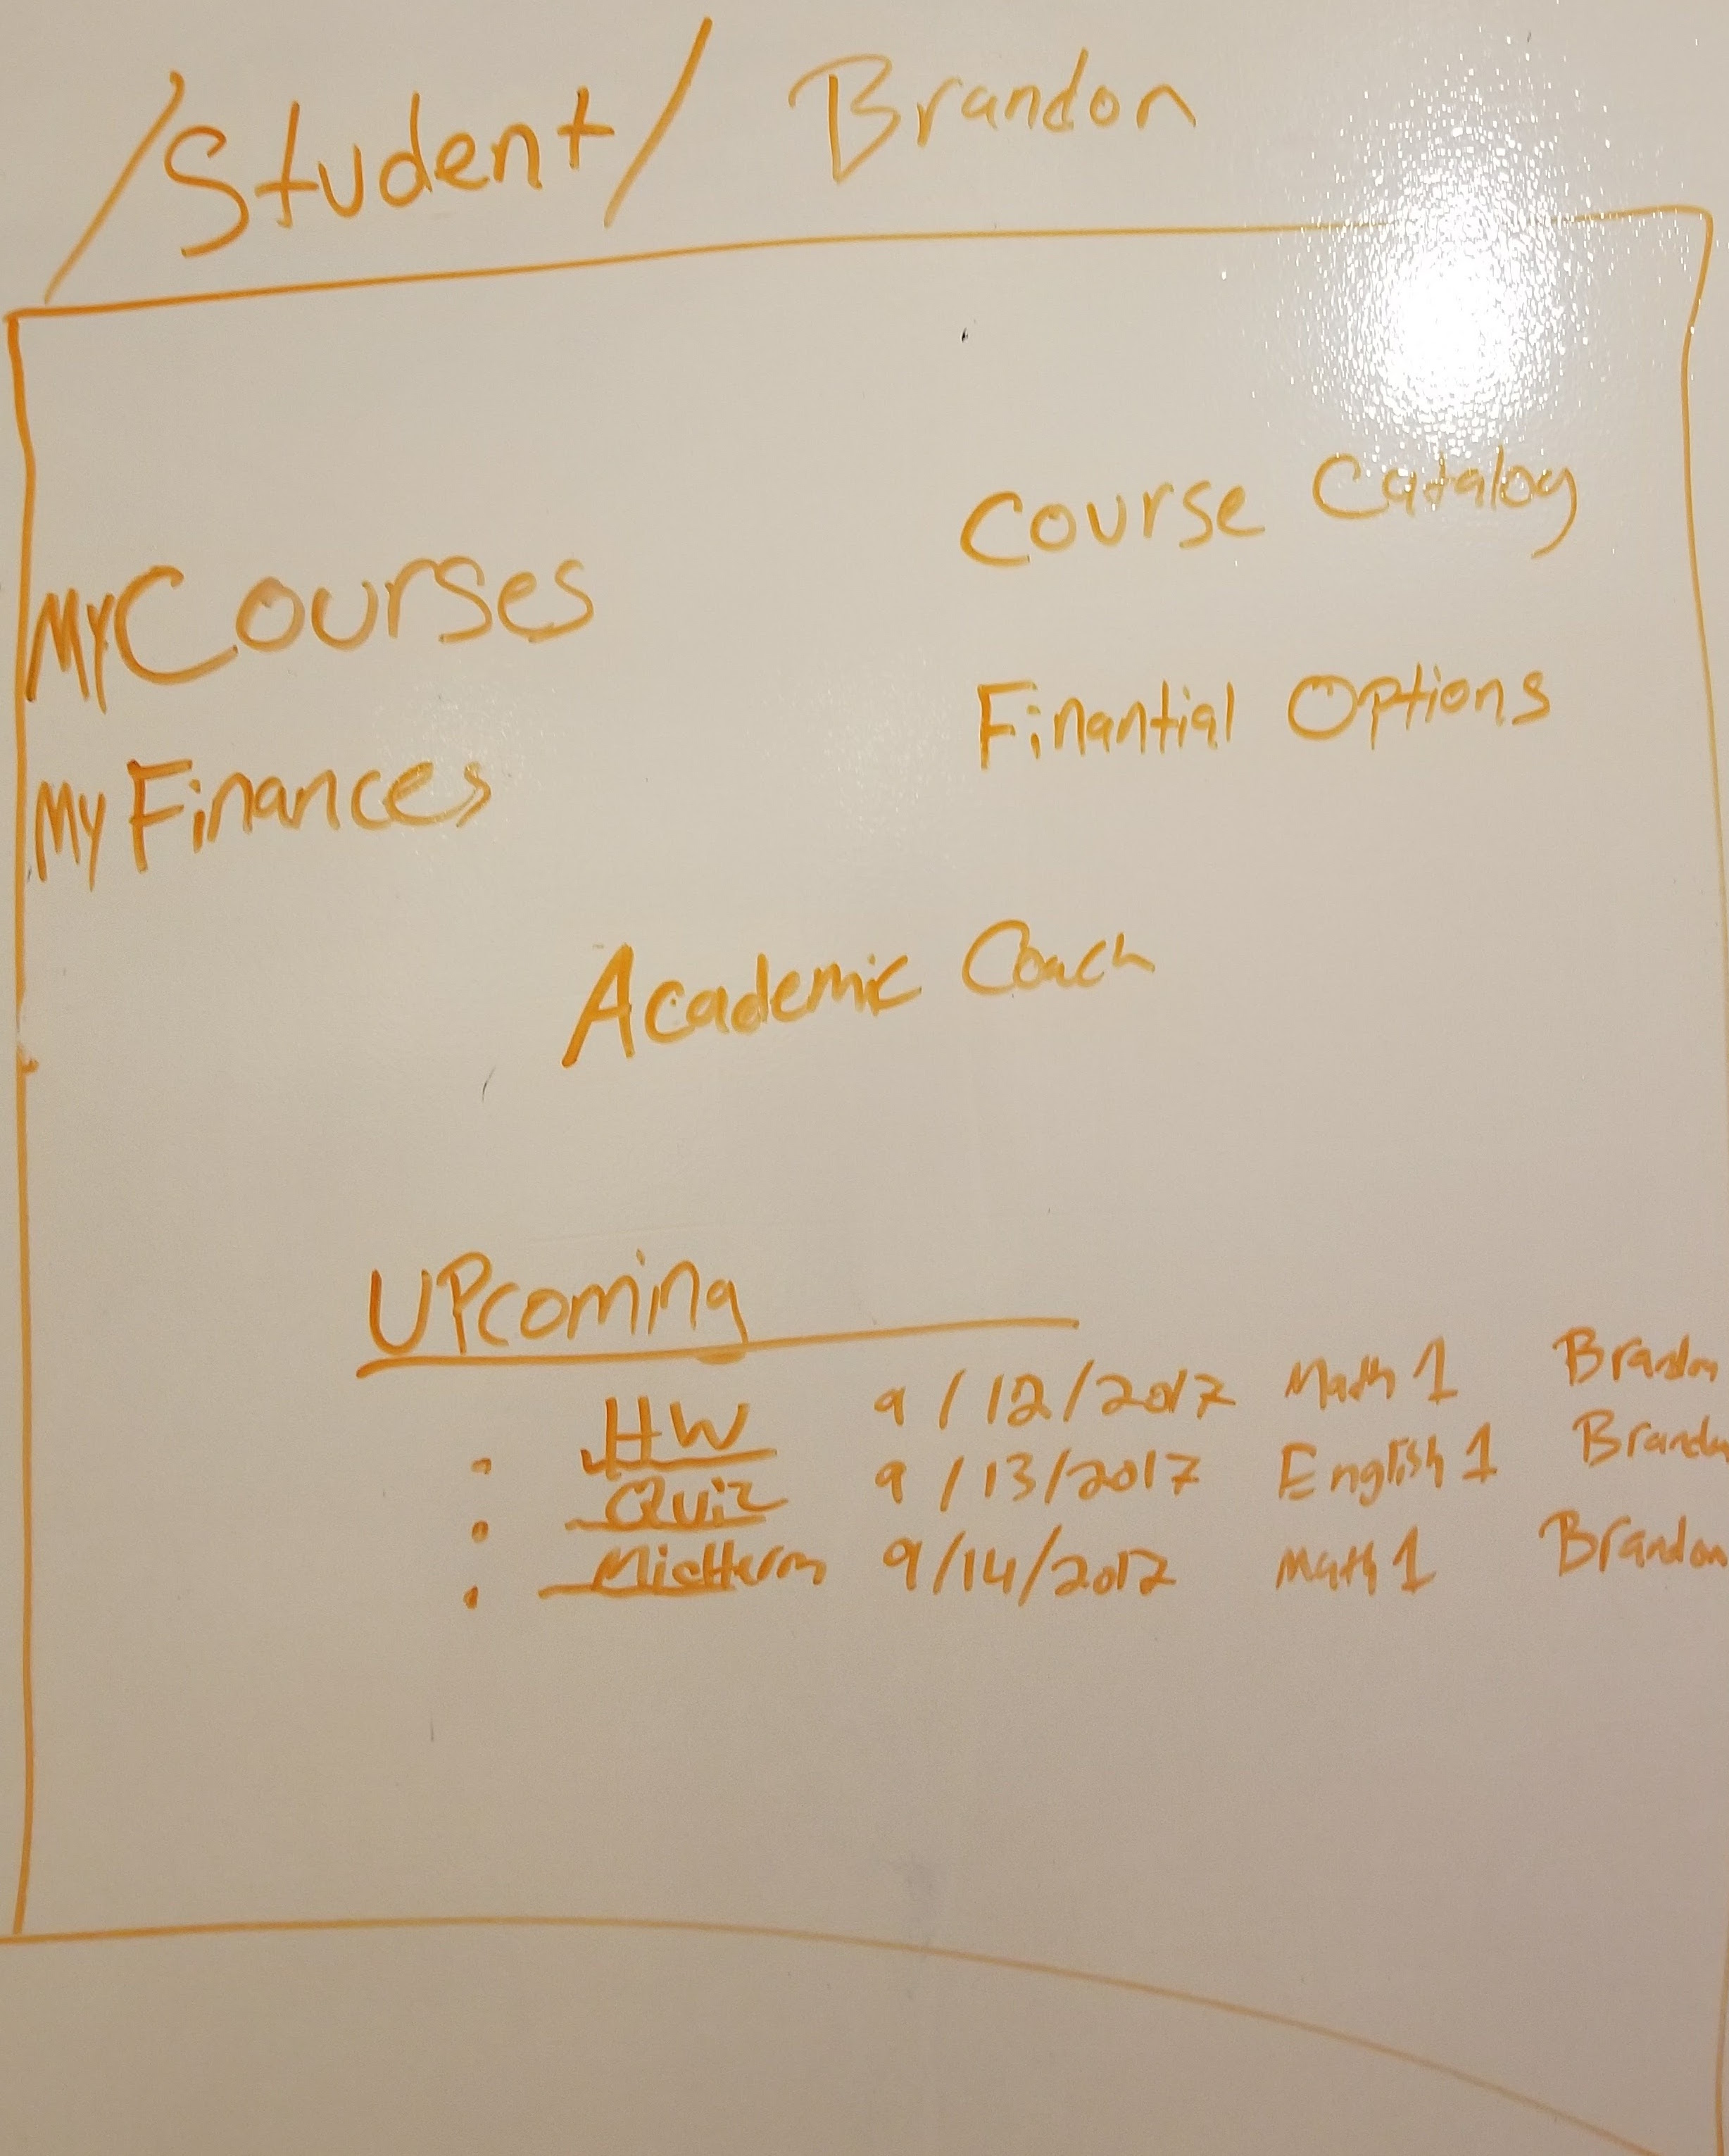 /Student/ Brandon
Course Catalog
My Courses
Finantial Options
My Finances
Academic Coach
Upcoming
HW 9/12/2017 Math 1 Brandon
Quiz 9/13/2017 English 1 Brandon
Midterm 9/14/2017 Math 1 Brandon